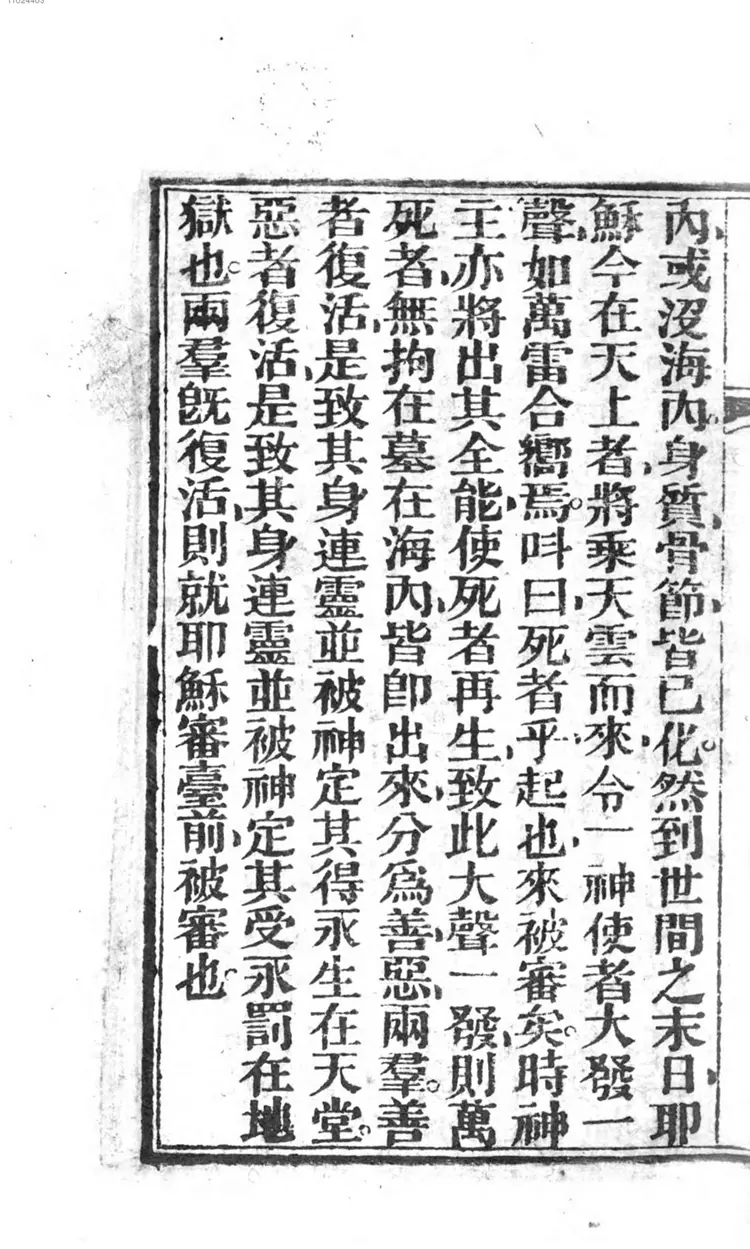 11024403
內、或沒海內。身質、骨節、皆已化。然到世間之末日、耶
穌今在天上者、將乘天雲而來、令一神使者大發一
聲、如萬雷合嚮焉。呌曰、死者乎、起也、來被審矣。時神
主亦將出其全能、使死者再生、致此大聲一發、則萬
死者、無拘在墓在海內、皆卽出來、分爲善、惡、兩羣。善
者復活、是致其身連靈並被神定其得永生在天堂。
惡者復活、是致其身連靈並被神定其受永罰在地
獄也。兩羣旣復活、則就耶穌審臺前、被審也。